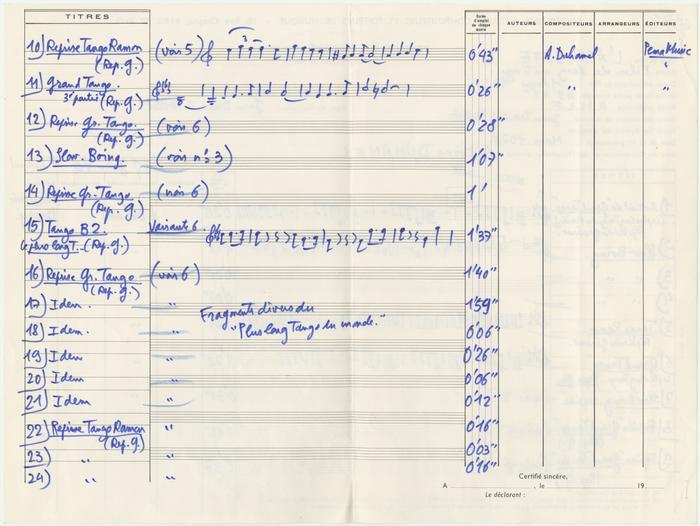 TITRES
Durée d'emploi de chaque œuvre
AUTEURS COMPOSITEURS ARRANGEURS ÉDITEURS
10) Reprise Tango Ramon (voir 5) 0'43" A. Duhamel
(Rep. g.)
11) Grand Tango. 0'26" " "
3e partie (Rep. G.)
12) Reprise Gr. Tango. (voir 6) 0'28"
(Rep. g.)
13) Slow. Boing. (voir n: 3) 1'07"
14) Reprise Gr. Tango (voir 6) 1'
(Rep. G.)
15) Tango B2. Variante 6. 1'37"
le plus long T. (Rep. G.)
16) Reprise Gr. Tango (voir 6) 1'40"
(Rep. G.)
17) Idem. " 1'59"
Fragments divers du
18) Idem. "Plus long Tango du monde." 0'06"
19) Idem " 0'26"
20) Idem " 0'06"
21) Idem " 0'12"
22) Reprise Tango Ramon " 0'16"
(Rep. G.)
23) " " 0'03"
24) " " 0'16"
Certifié sincère,
A , le 19
Le déclarant :